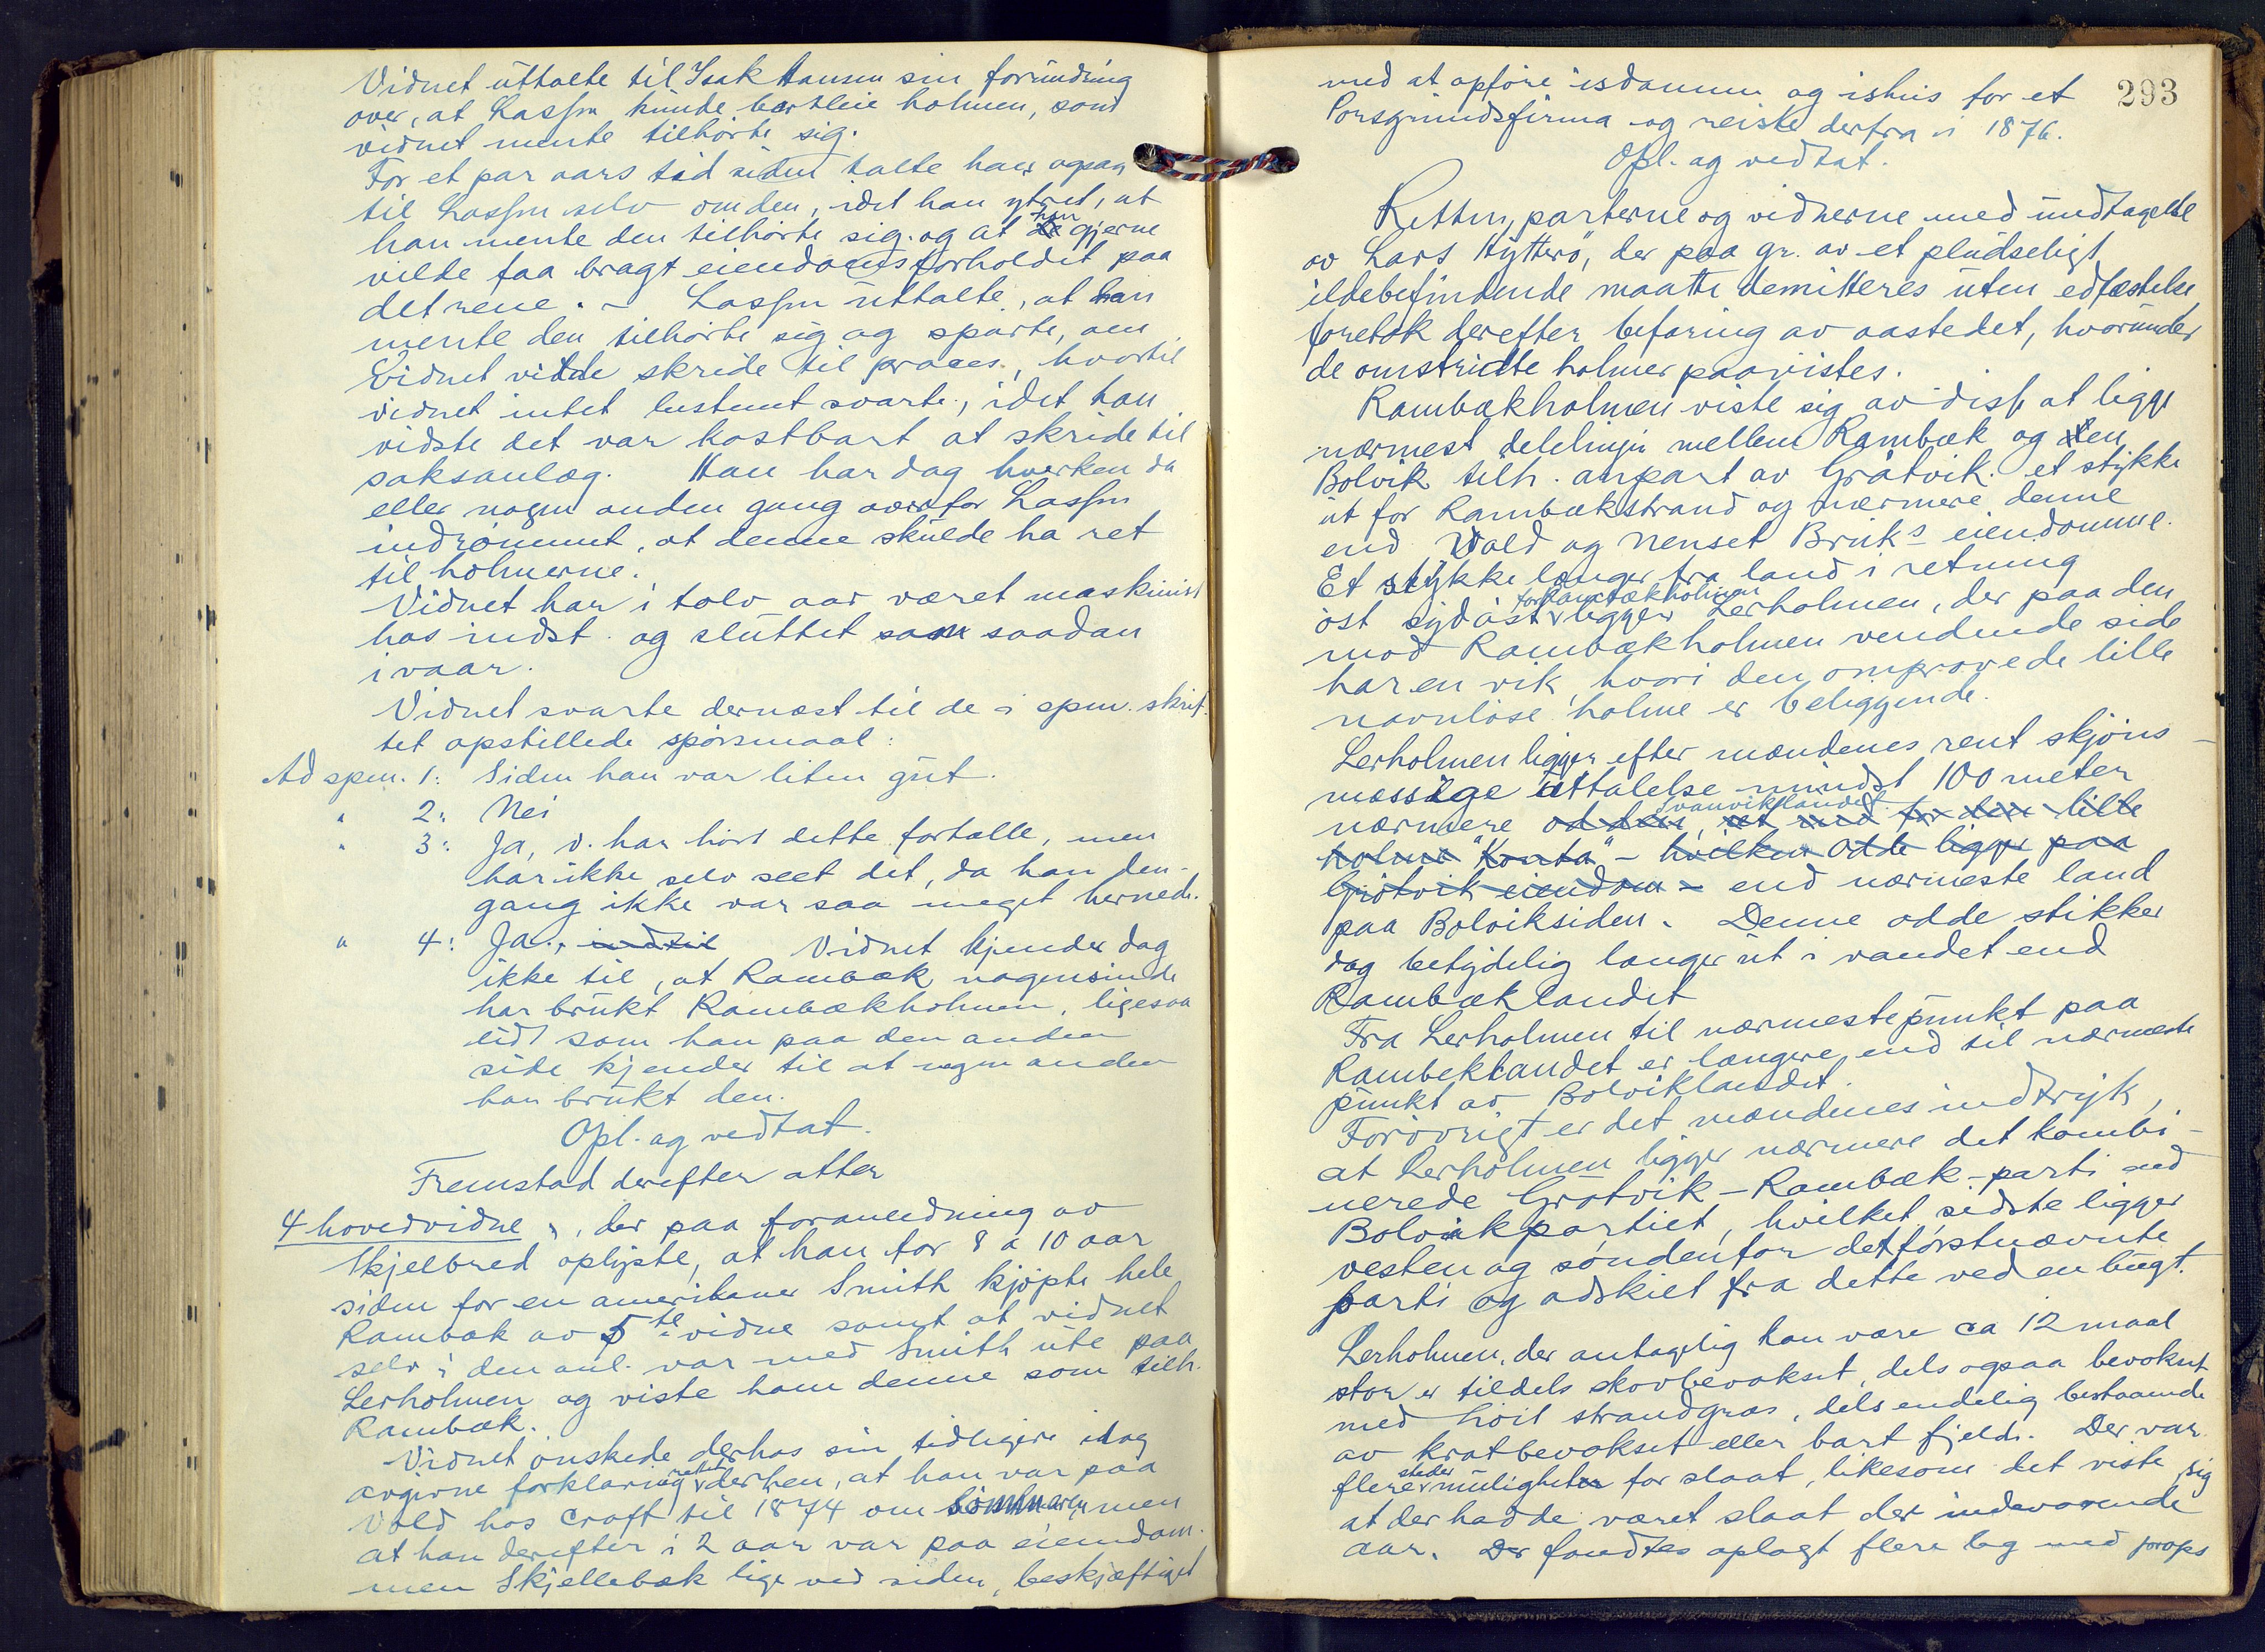 Vidnet uttalte til Isak Hansen sin forundring
over, at Lassen kunde bortleie holmen, som
vidnet mente tilhørte sig.
For et par aars tid siden talte han ogsaa
til Lassen selv om den, idet han ytret, at
han mente den tilhørte sig og at han gjerne
vilde faa bragt eiendomsforholdet paa
det rene. - Lassen uttalte, at han
mente den tilhørte sig og spurte, om
Vidnet vilde skride til proces, hvortil
vidnet intet bestemt svarte, idet han
vidste det var kostbart at skride til
saksanlæg. Han har dog hverken da
eller nogen anden gang overfor Lassen
indrømmet, at denne skulde ha ret
til holmerne.
Vidnet har i tolv aar været maskinist
hos indst. og sluttet som saadan
i vaar.
Vidnet svarte dernæst til de i spm. skrif-
tet opstillede spørsmaal:
Ad spm. 1: Siden han var liten gut.
" 2: Nei
" 3: Ja, v. har hørt dette fortalle, men
har ikke selv seet det, da han den-
gang ikke var saa meget hernede.
" 4: Ja., indtil Vidnet kjender dog
ikke til, at Rambæk nogensinde
har brukt Rambækholmen, ligesaa
lidt som han paa den anden
side kjender til at nogen anden
har brukt den.
Opl. og vedtat.
Fremstod derefter atter
4 hovedvidne, der paa foranledning av
Skjelbred oplyste, at han for 8 a 10 aar
siden for en amerikaner Smith kjøpte hele
Rambæk av 5te vidne samt at vidnet
selv i den anl. var med Smith ute paa
Lerholmen og viste ham denne som tilh.
Rambæk.
Vidnet ønskede derhos sin tidligere idag
avgivne forklaring rettet derhen, at han var paa
Vold hos Croft til 1874 om sommeren, men
at han derefter i 2 aar var paa eiendom-
men Skjellebæk lige ved siden, beskjæftiget
293
med at opføre isdammen og ishus for et
Porsgrundsfirma og reiste derfra i 1876.
Opl. og vedtat.
Retten, parterne og vidnerne med undtagelse
av Lars Hytterø, der paa gr. av et pludseligt
ildebefindende maatte demitteres uten edfæstelse,
foretok derefter befaring av aastedet, hvorunder
de omstridte holmer paavistes.
Rambækholmen viste sig av disse at ligge
nærmest delelinjen mellem Rambæk og den
Bolvik tilh. anpart av Gråtvik. et stykke
ut for Rambækstrand og nærmere denne
end Vold og Nenset Bruks eiendomme.
Et stykke længer fra land i retning
øst sydøst for Rambækholmen ligger Lerholmen, der paa den
mod Rambækholmen vendende side
har en vik, hvori den omprovede lille
navnløse holme er beliggende.
Lerholmen ligger efter mændenes rent skjøns-
mæssige uttalelse mindst 100 meter
nærmere odden, Svanviklandet ret ned for den lille
holme "Konta" - hvilken odde ligger paa
Grotvik eiendom - end nærmeste land
paa Bolviksiden. Denne odde stikker
dog betydelig længer ut i vandet end
Rambæklandet
Fra Lerholmen til nærmeste punkt paa
Rambeklandet er længere end til nærmeste
punkt av Bolviklandet.
Forøvrigt er det mændenes indtryk,
at Lerholmen ligger nærmere det kombi-
nerede Grotvik-Rambæk-parti end
Bolvikpartiet, hvilket sidste ligger
vesten og søndenfor det førstnævnte
parti og adskilt fra dette ved en bugt.
Lerholmen, der antagelig kan være ca 12 maal
stor er tildels skovbevokset, dels ogsaa bevokset
med høit strandgræs, dels endelig bestaaende
av kratbevokset eller bart fjeld. Der var
flere steder muligheter for slaat, likesom det viste sig
at der hadde været slaat der indeværende
aar. Der fandtes oplagt flere lag med props